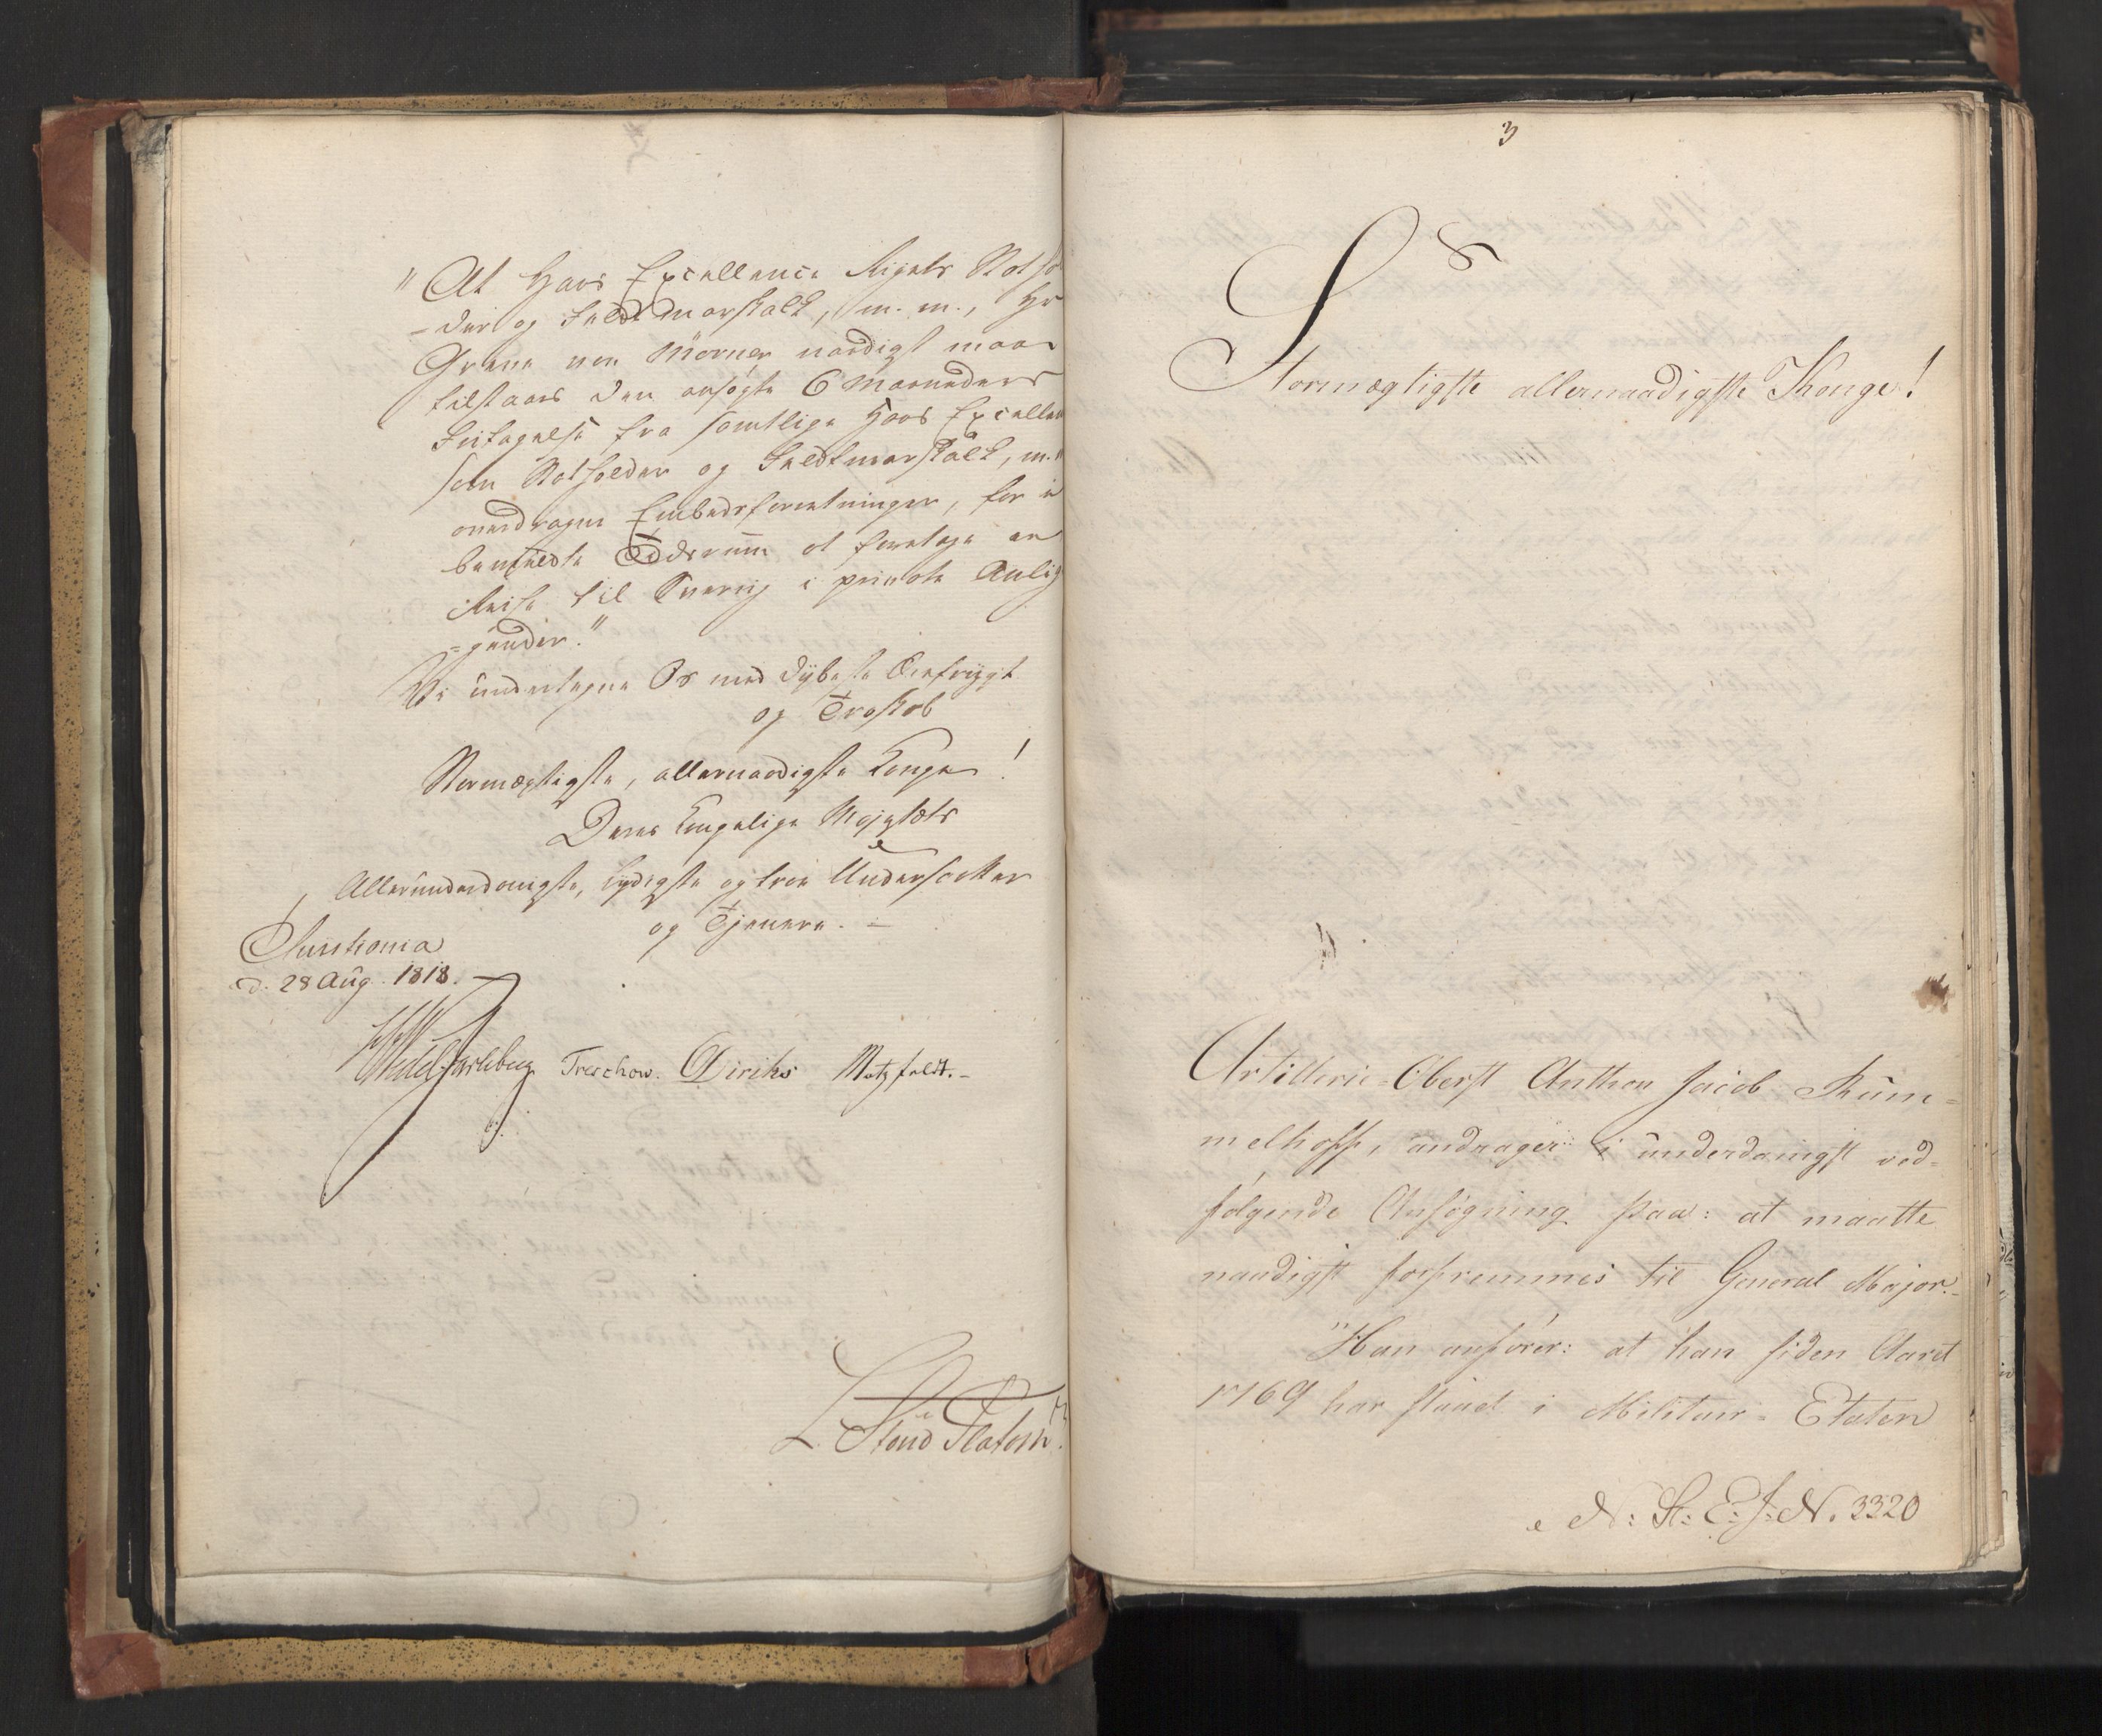 "At Hans Excellence Rigets Statho
-der og Feldtmarskalk, m. m., Hr
Greve von Mörner naadigst maae
tilstaaes den ansøgte 6 Maaneders
Fritagelse fra samtlige Hans Excellen
som Statholder og Feldtmarskalk, m. m
overdragne Embedsforretninger, for i
bemeldte Tidsrum at foretage en
Reise til Sverrig i private Anlig
=gender."
Vi undertegne Os med dybeste Ærefrygt
og Troskab
Stormægtigste, allernaadigste Konge!
Deres Kongelige Majestæts
Allerunderdanigste, lydigste og troe Undersaatter
og Tjenere. -
Christiania
d. 28 Aug. 1818.
Wedel Jarlsberg Treschow. Diriks Motzfeldt.-
L. Stoud Platou
3
S
Stormægtigste allernaadigste Konge!
Artillerie-Oberst Anthon Jacob Rum=
melhoff, andrager i underdanigst ved=
følgende Ansøgning paa: at maatte
naadigst forfremmes til General Major.-
"Han anfører: at han siden Aaret
1769 har staaet i Militair-Etaten
N: St: E: J: N. 3320